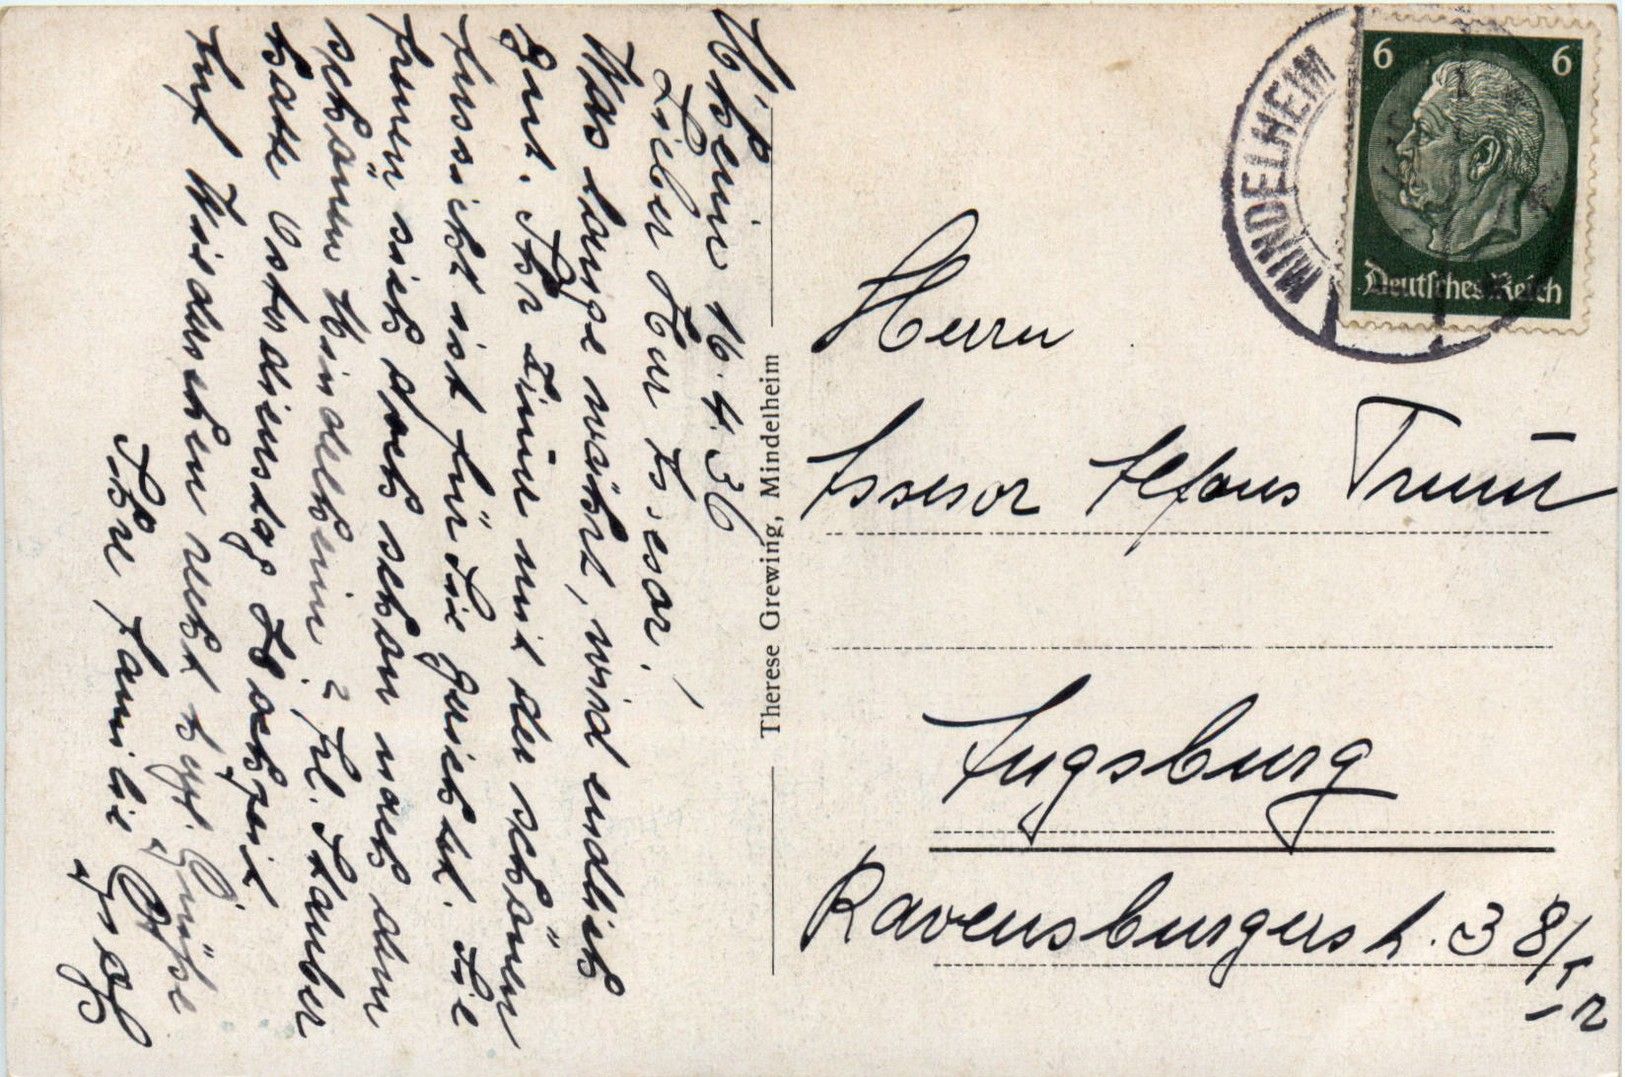 M'heim 16.4.36
Lieber Herr Assesor!
Was lange währt, wird endlich
gut. Ihr Zimmer mit der schönen
Aussicht ist für Sie gerichtet. Sie
freuen sich doch schon nach dem
schönen Mindelheim? Frl. Stauber
hatte Osterdienstag
Auf Wiedersehen recht herzl. Grüsse
Ihre Familie
Therese Grewing, Mindelheim
MINDELHEIM
6 6
Deutsches Reich
Herrn
Assesor Alfons
Augsburg
Ravensburgerstr. 38/I